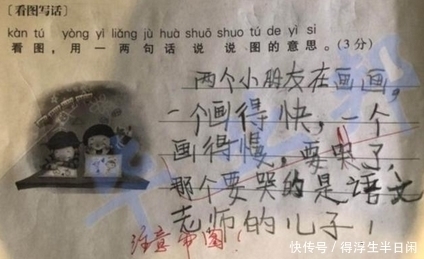 [看图写话]
kàn tú yòng yì liǎng jù huà shuō shuo tú de yì si
看图，用一两句话说说图的意思。(3分)
两个小朋友在画画，
一个画得快，一个
画得慢，要哭了，
那个要哭的是语文
老师的儿子！
注意审图！
快传号/得浮生半日闲